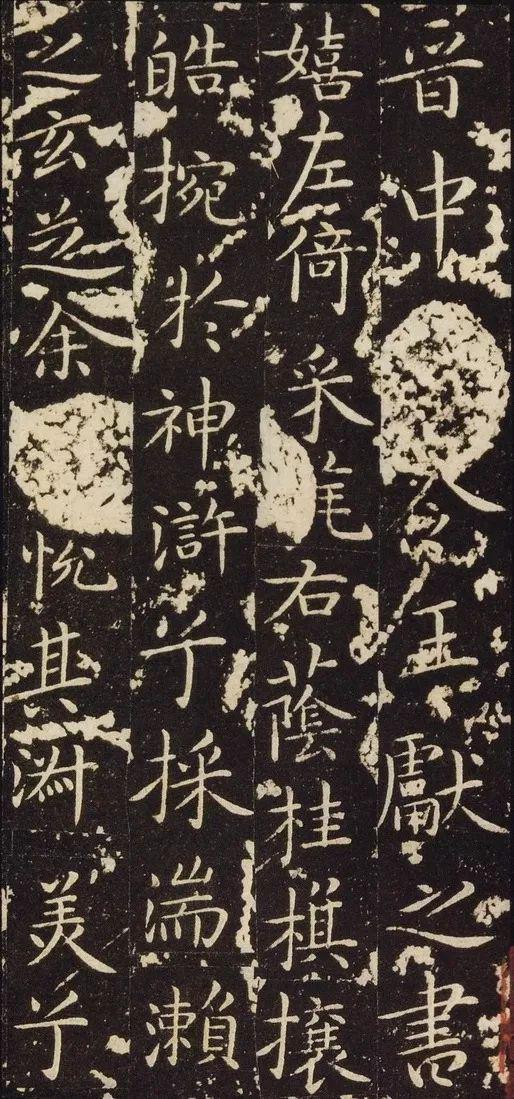 晉中令王獻之書
嬉左倚采旄右蔭桂旗攘
皓捥扵神滸兮採湍瀨
之玄芝余悅其淑美兮